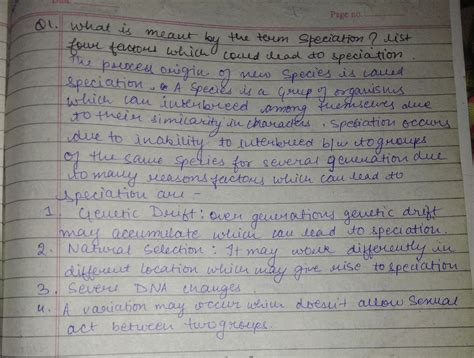 Page no.
Q1. What is meant by the term Speciation? list
four factors which could lead to speciation.
The process origin of new Species is called
speciation. A Species is a Group of organisms
which can interbreed among themselves due
to their similarity in characters. Speciation occurs
due to inability to interbreed b/w two groups
of the same Species for several generation due
to many reasons factors which can lead to
speciation are -
1. Genetic Drift: over generations genetic drift
may accumulate which can lead to speciation.
2. Natural Selection: It may work differently in
different location which may give rise to speciation
3. Severe DNA changes.
4. A variation may occur which doesn't allow Sexual
act between two groups.